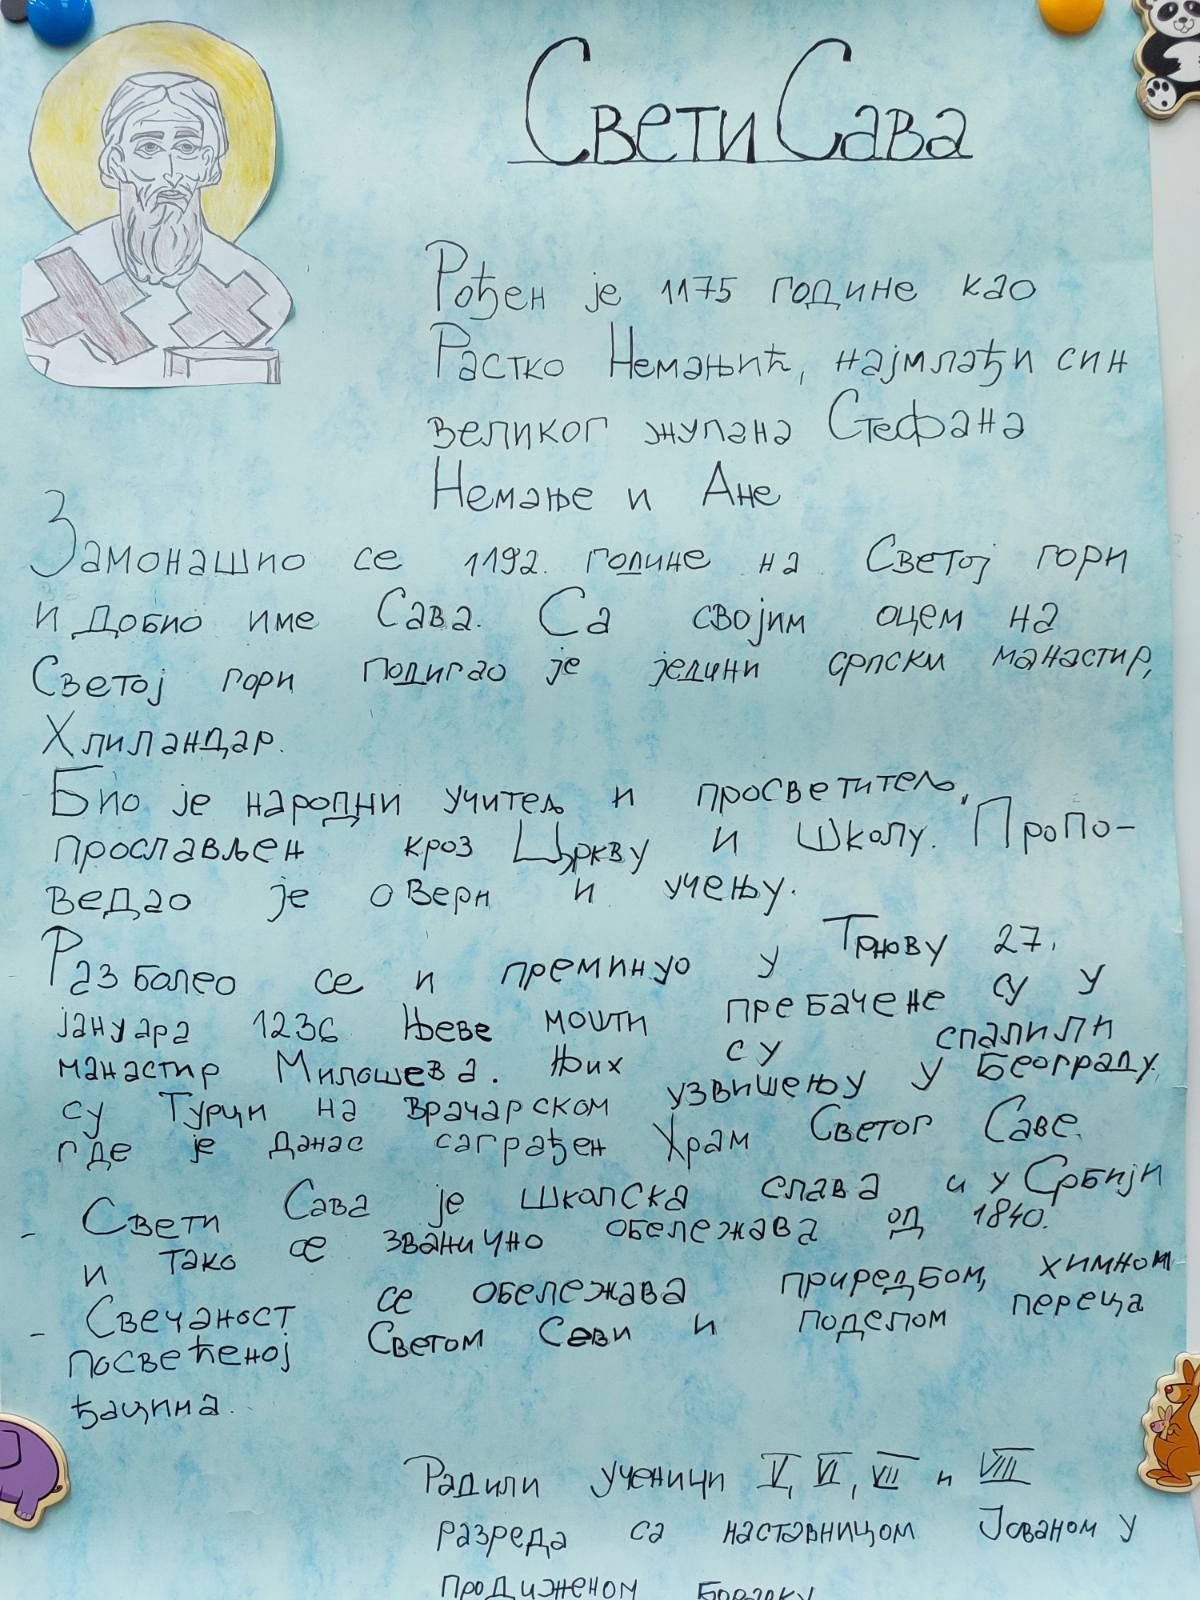 Свети Сава
Рођен је 1175 године као
Растко Немањић, најмлађи син
великог жупана Стефана
Немање и Ане
Замонашио се 1192. године на Светој гори
и добио име Сава. Са својим оцем на
Светој гори подигао је једини српски манастир,
Хлиландар.
Био је народни учитељ и просветитељ,
прослављен кроз Цркву и школу. Пропо-
ведао је о вери и учењу.
Разболео се и преминуо у Трнову 27.
јануара 1236 Њеве мошти пребачене су у
манастир Милошева. Њих су спалили
су Турци на врачарском узвишењу у Београду,
где је данас саграђен Храм Светог Саве.
- Свети Сава је школска слава и у Србији
и тако се званично обележава од 1840.
- Свечаност се обележава приредбом, химном
посвећеној Светом Сави и поделом переца
ђацима.
Радили ученици V, VI, VII и VIII
разреда са наставницом Јованом у
продиженом боравку